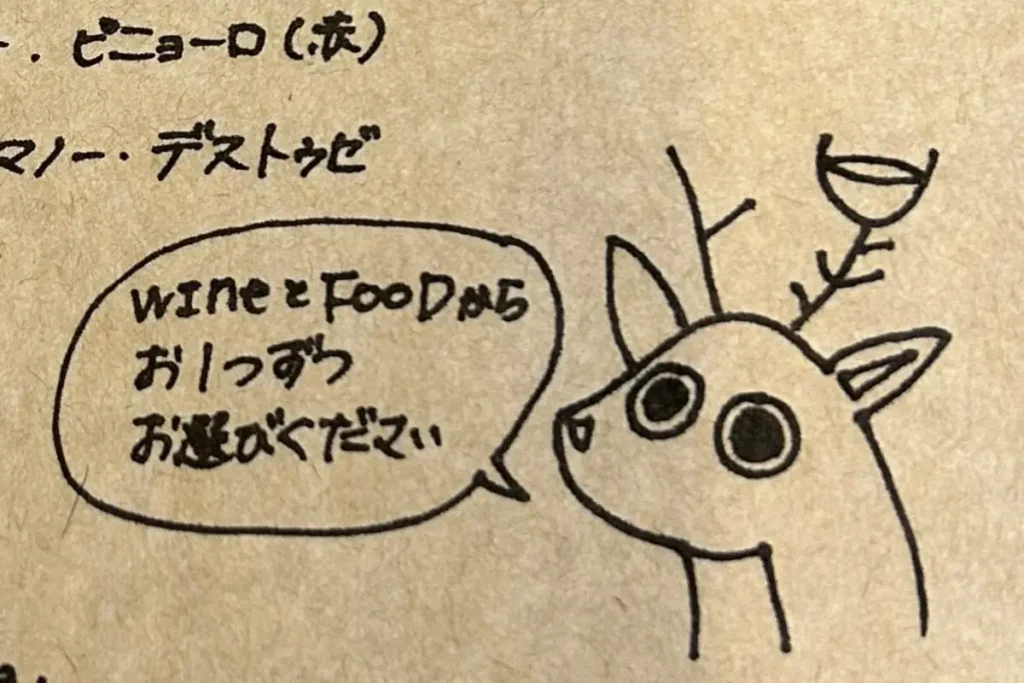 ー・ピニョーロ(赤)
マノー・デストゥゼ
wIneとFooDから
お1つずつ
お選びください